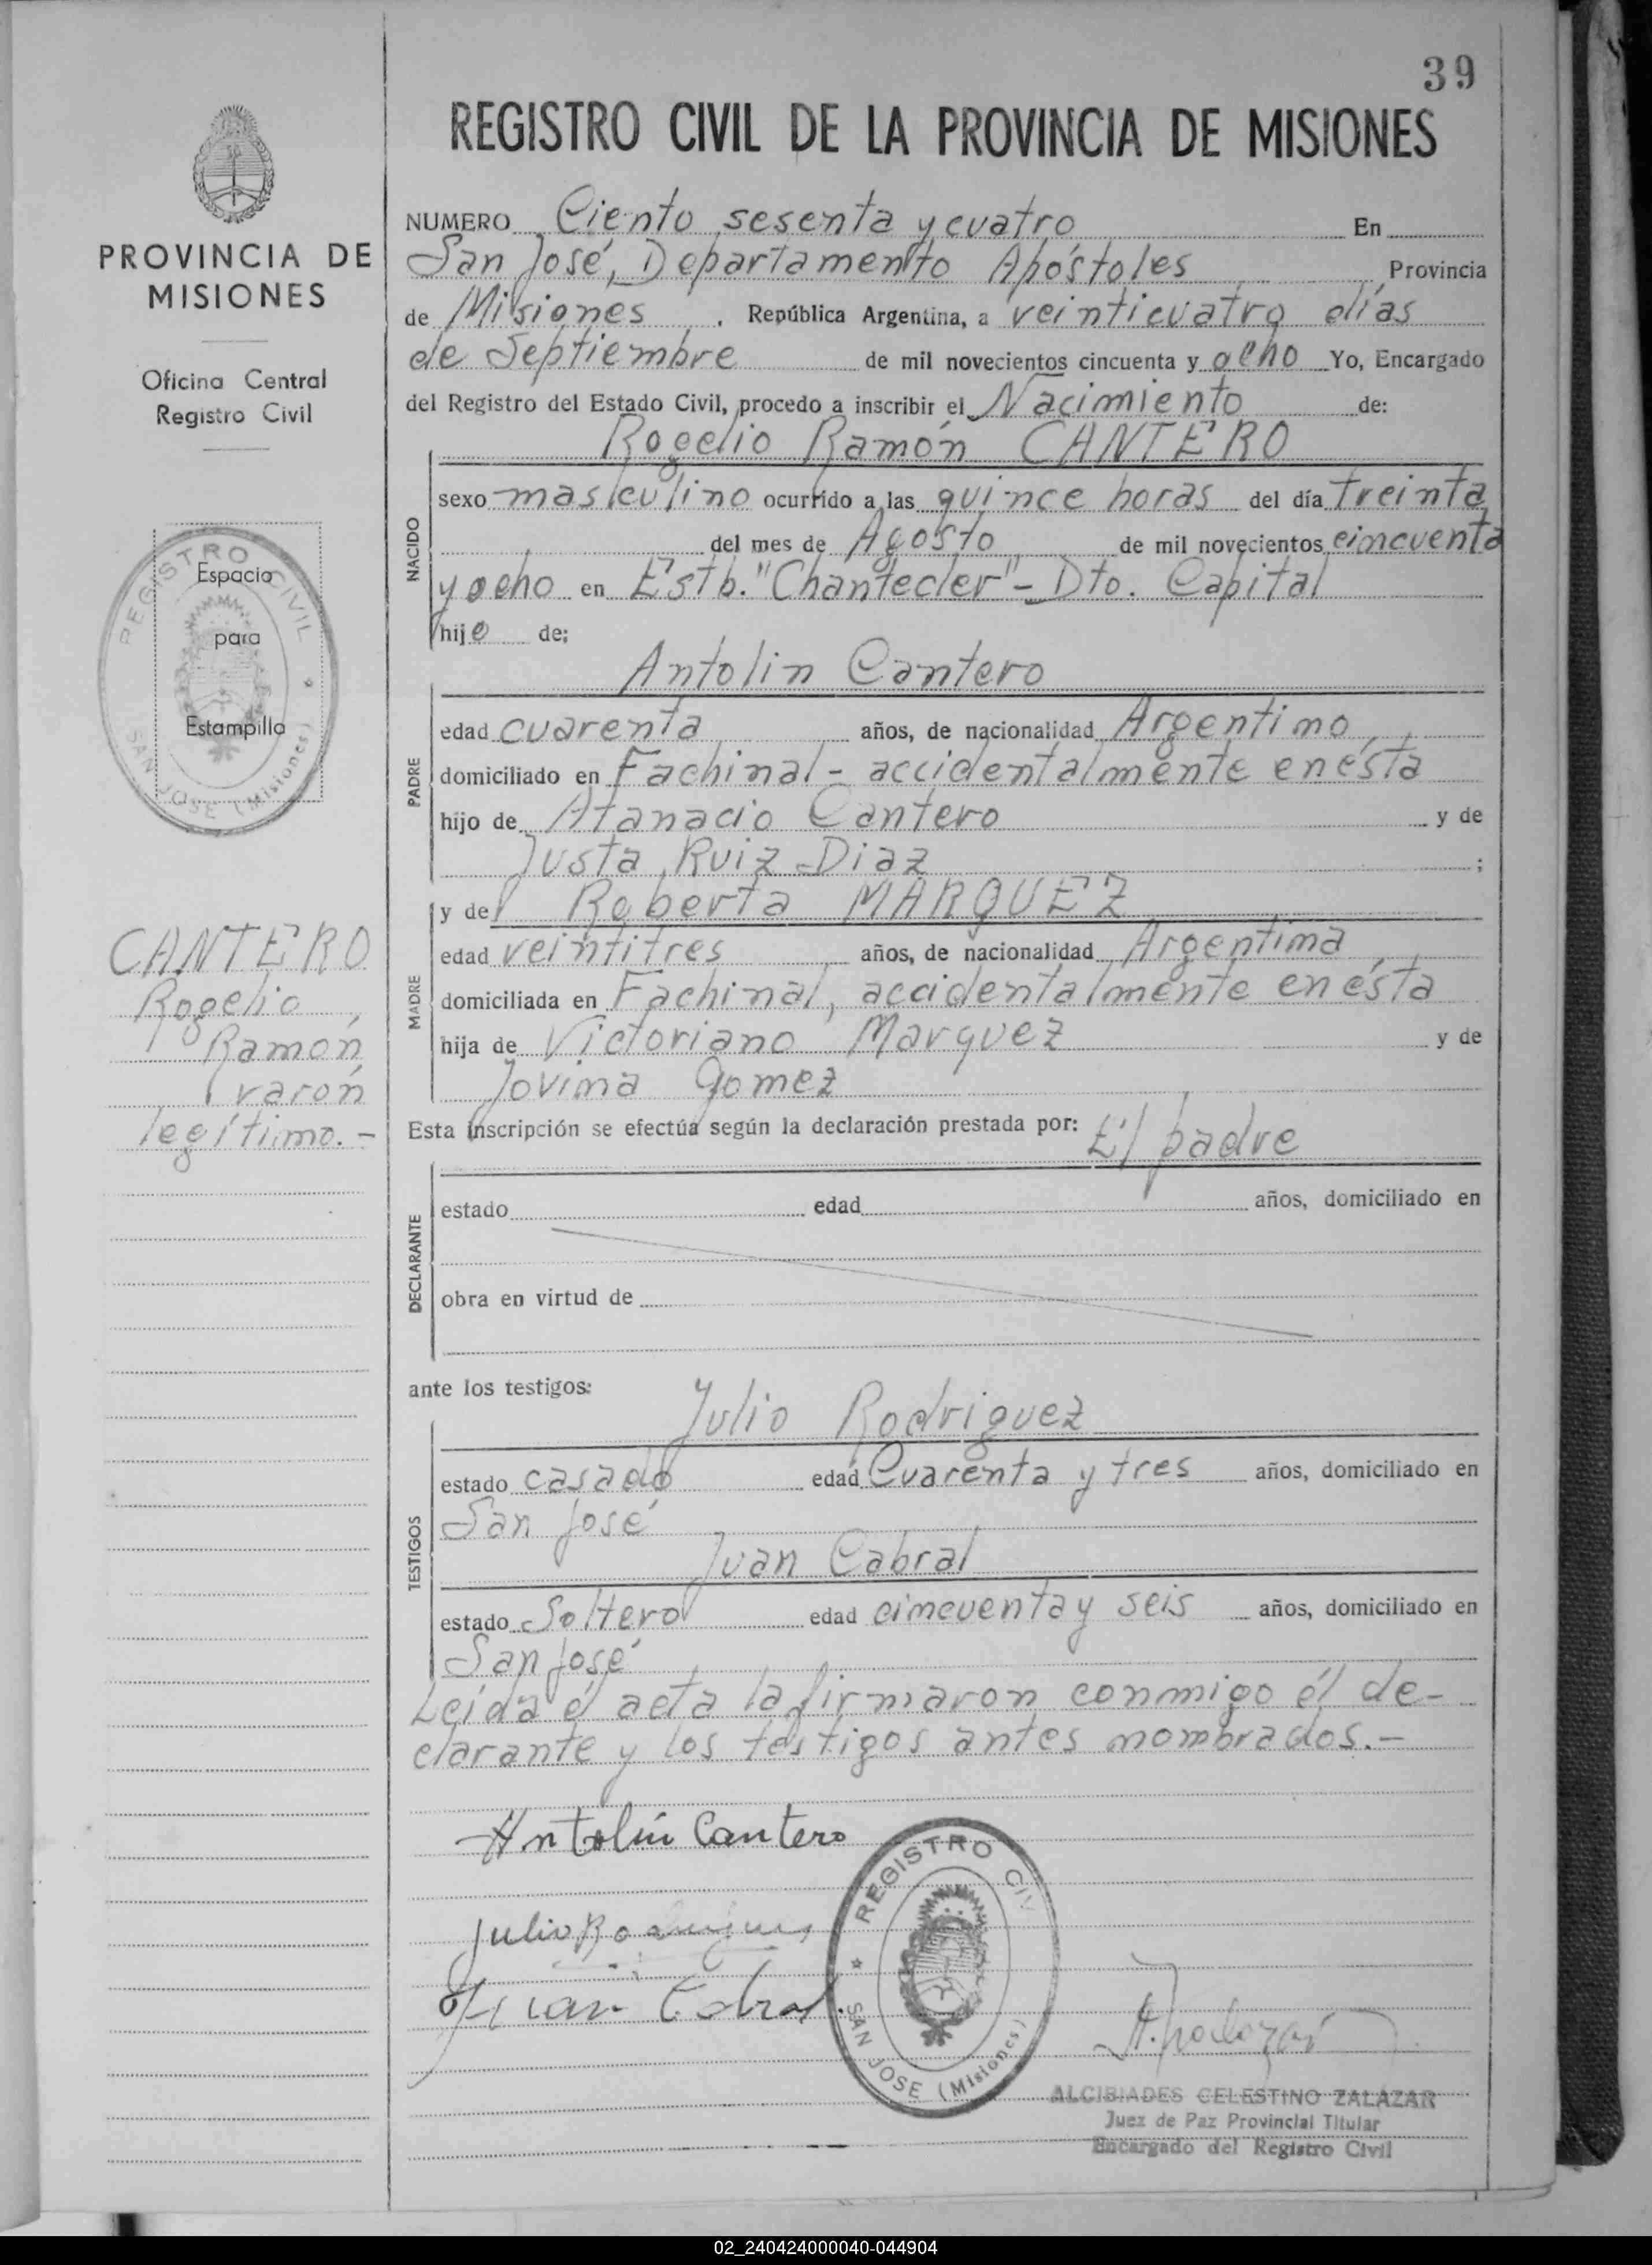 39
REGISTRO CIVIL DE LA PROVINCIA DE MISIONES
PROVINCIA DE
MISIONES
Oficina Central
Registro Civil
REGISTRO CIVIL
Espacio
para
Estampilla
SAN JOSE (Misiones)
CANTERO
Rogelio
Ramón
varón
legítimo.-
NUMERO Ciento sesenta y cuatro En
San José, Departamento Apóstoles Provincia
de Misiones . República Argentina, a veinticuatro días
de Septiembre de mil novecientos cincuenta y ocho Yo, Encargado
del Registro del Estado Civil, procedo a inscribir el Nacimiento de:
Rogelio Ramón CANTERO
NACIDO
sexo masculino ocurrido a las quince horas del día treinta
del mes de Agosto de mil novecientos cincuenta
y ocho en Estb. "Chantecler" - Dto. Capital
hijo de;
Antolin Cantero
PADRE
edad cuarenta años, de nacionalidad Argentino,
domiciliado en Fachinal - accidentalmente en ésta
hijo de Atanacio Cantero y de
Justa Ruiz Diaz ;
MADRE
y de Roberta MARQUEZ
edad veintitres años, de nacionalidad Argentina,
domiciliada en Fachinal, accidentalmente en ésta
hija de Victoriano Marquez y de
Jovina Gomez
Esta inscripción se efectúa según la declaración prestada por: El padre
DECLARANTE
estado edad años, domiciliado en
obra en virtud de
ante los testigos:
Julio Rodriguez
TESTIGOS
estado casado edad Cuarenta y tres años, domiciliado en
San José
Juan Cabral
estado Soltero edad cincuenta y seis años, domiciliado en
San José
Leida el acta la firmaron conmigo él de-
clarante y los testigos antes nombrados.-
Antolín Cantero
Julio Rodriguez
Juan Cabral
REGISTRO CIV
SAN JOSE (Misiones)
ALCIBIADES CELESTINO ZALAZAR
Juez de Paz Provincial Titular
Encargado del Registro Civil
02_240424000040-044904